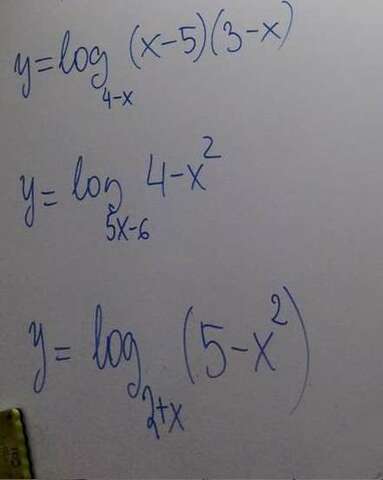 y=log₄₋ₓ (x-5)(3-x)
y=log₅ₓ₋₆ 4-x²
y=log₂₊ₓ (5-x²)